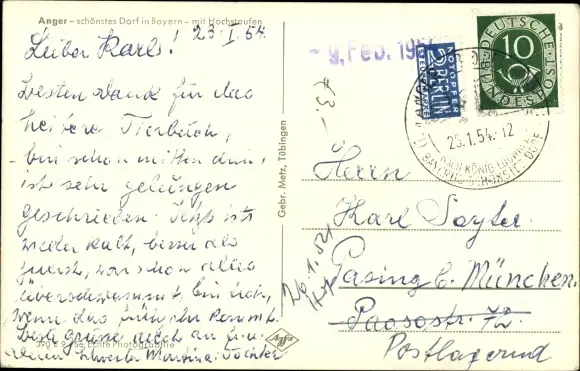 Anger – schönstes Dorf in Bayern – mit Hochstaufen
23. I. 54.
Lieber Karl!
Besten Dank für das
heitere Tierbuch,
bin schon mitten drin,
ist sehr gelungen
geschrieben. Jetzt ist
wieder kalt, besser als
zuerst, war schon alles
überschwemmt. Bin froh,
wenn das Frühjahr kommt.
Beste Grüße auch an
deinen Schwester Martina Tochter
Echte Photographie
Gebr. Metz, Tübingen
Agfa
9. Feb. 195
43.–
NOTOPFER
2 BERLIN
STEUERMARKE
DEUTSCHE BUNDESPOST
10
23.1.54.-12
BAYERNS SCHÖNSTES DORF
Herrn
Karl Sayter
Pasing b. München.
Paosostr.
Postlagernd
26.1.54